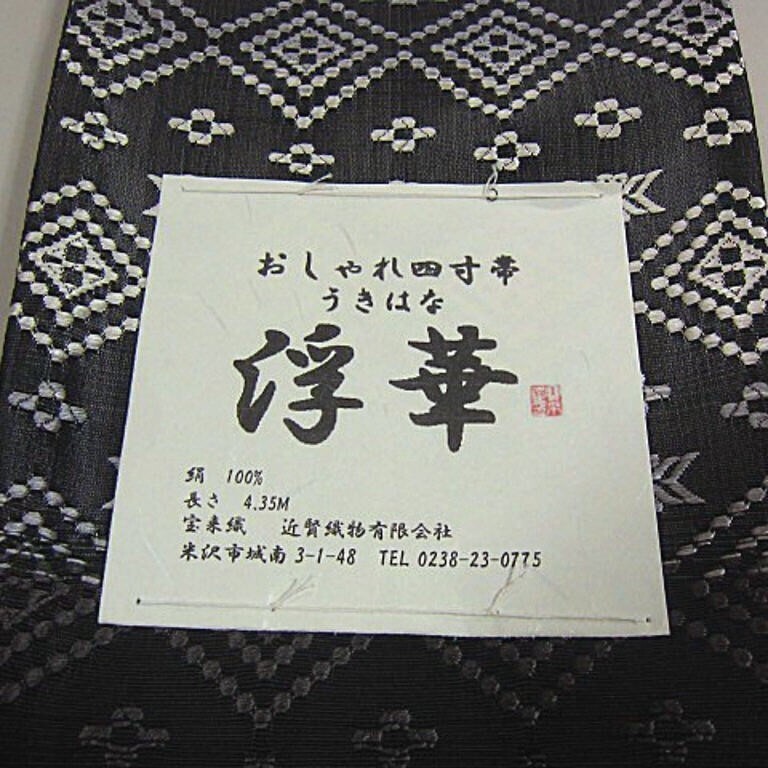 おしゃれ四寸帯
うきはな
浮華
絹 100%
長さ 4.35M
宝来織 近賢織物有限会社
米沢市城南3-1-48 TEL 0238-23-0775